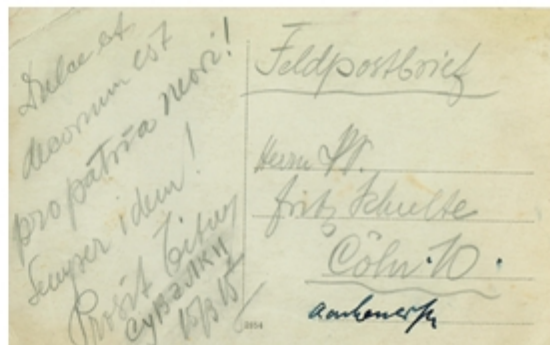 Dulce et
decorum est
pro patria mori!
Semper idem!
Prosit
Сувалки
15/3 15
Feldpostbrief
Herrn
Fritz Schulte
Cöln